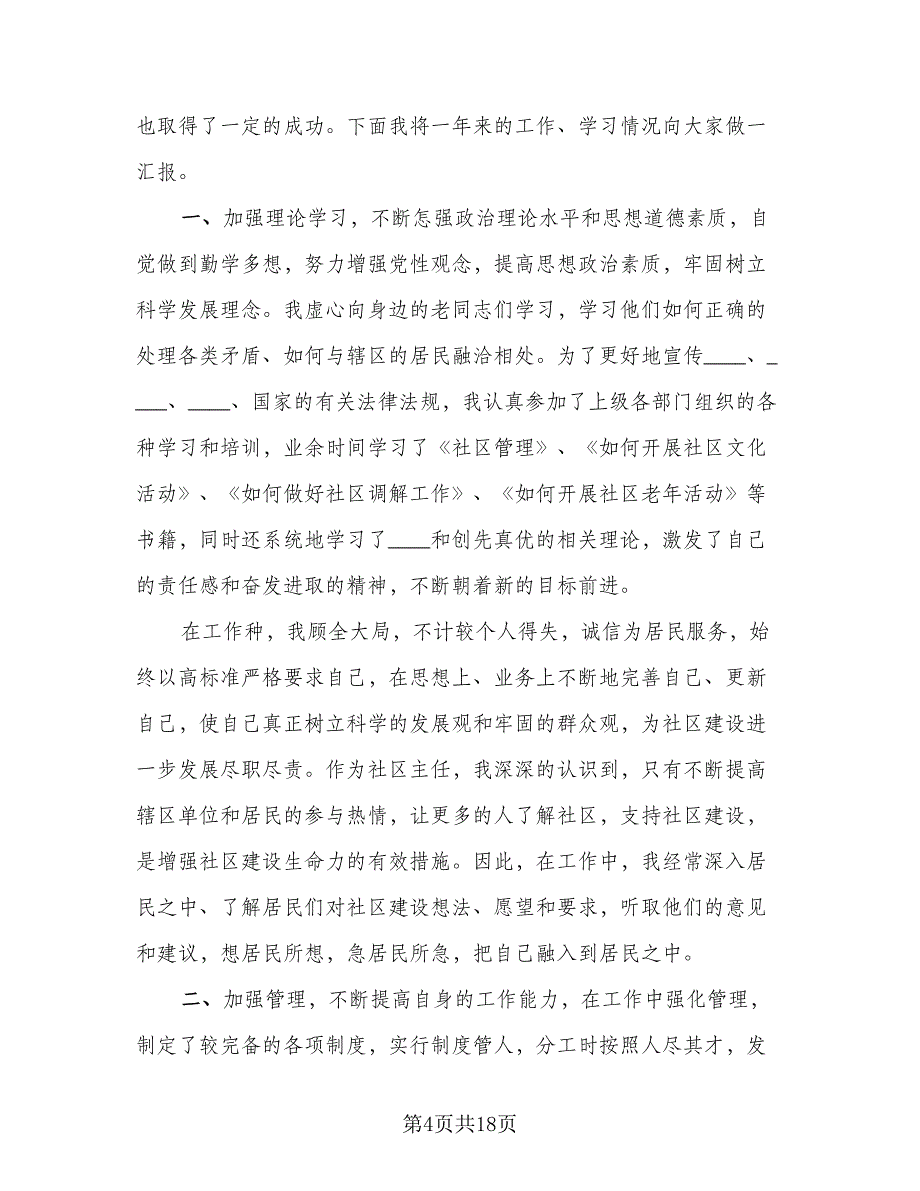 也取得了一定的成功。下面我将一年来的工作、学习情况向大家做一
汇报。
一、加强理论学习，不断怎强政治理论水平和思想道德素质，自
觉做到勤学多想，努力增强党性观念，提高思想政治素质，牢固树立
科学发展理念。我虚心向身边的老同志们学习，学习他们如何正确的
处理各类矛盾、如何与辖区的居民融洽相处。为了更好地宣传____、_
___、____、国家的有关法律法规，我认真参加了上级各部门组织的各
种学习和培训，业余时间学习了《社区管理》、《如何开展社区文化
活动》、《如何做好社区调解工作》、《如何开展社区老年活动》等
书籍，同时还系统地学习了____和创先真优的相关理论，激发了自己
的责任感和奋发进取的精神，不断朝着新的目标前进。
在工作种，我顾全大局，不计较个人得失，诚信为居民服务，始
终以高标准严格要求自己，在思想上、业务上不断地完善自己、更新
自己，使自己真正树立科学的发展观和牢固的群众观，为社区建设进
一步发展尽职尽责。作为社区主任，我深深的认识到，只有不断提高
辖区单位和居民的参与热情，让更多的人了解社区，支持社区建设，
是增强社区建设生命力的有效措施。因此，在工作中，我经常深入居
民之中、了解居民们对社区建设想法、愿望和要求，听取他们的意见
和建议，想居民所想，急居民所急，把自己融入到居民之中。
二、加强管理，不断提高自身的工作能力，在工作中强化管理，
制定了较完备的各项制度，实行制度管人，分工时按照人尽其才，发
第4页共18页